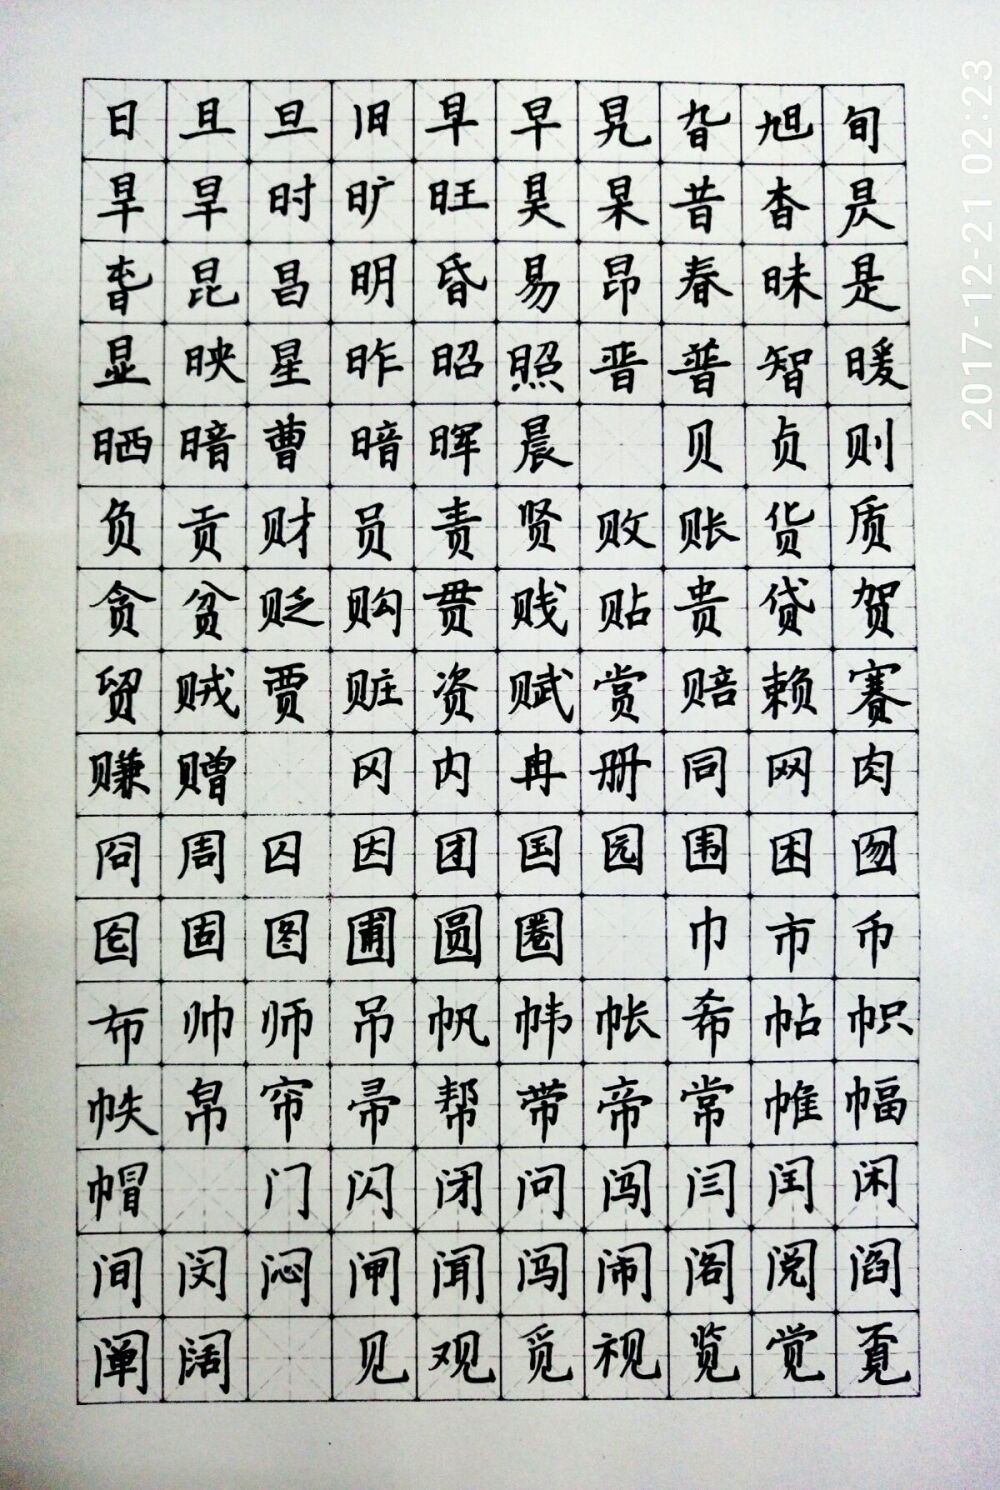 日旦旦旧早早旯旮旭旬
旱旱时旷旺昊杲昔杳昃
昆昌明昏易昂春昧是
显映星昨昭照晋普智暖
晒暗曹暗晖晨 贝贞则
负贡财员责贤败账货质
贪贫贬购贯贱贴贵贷贺
贸贼贾赃资赋赏赔赖赛
赚赠 冈内冉册同网肉
冏周囚因团国园围困囫
囵固图圃圆圈 巾市币
布帅师吊帆帏帐希帖帜
帙帛帘帚帮带帝常帷幅
帽 门闪闭问闯闫闰闲
间闵闷闸闻闯闹阁阅阎
阐阔 见观觅视览觉
2017-12-21 02:23